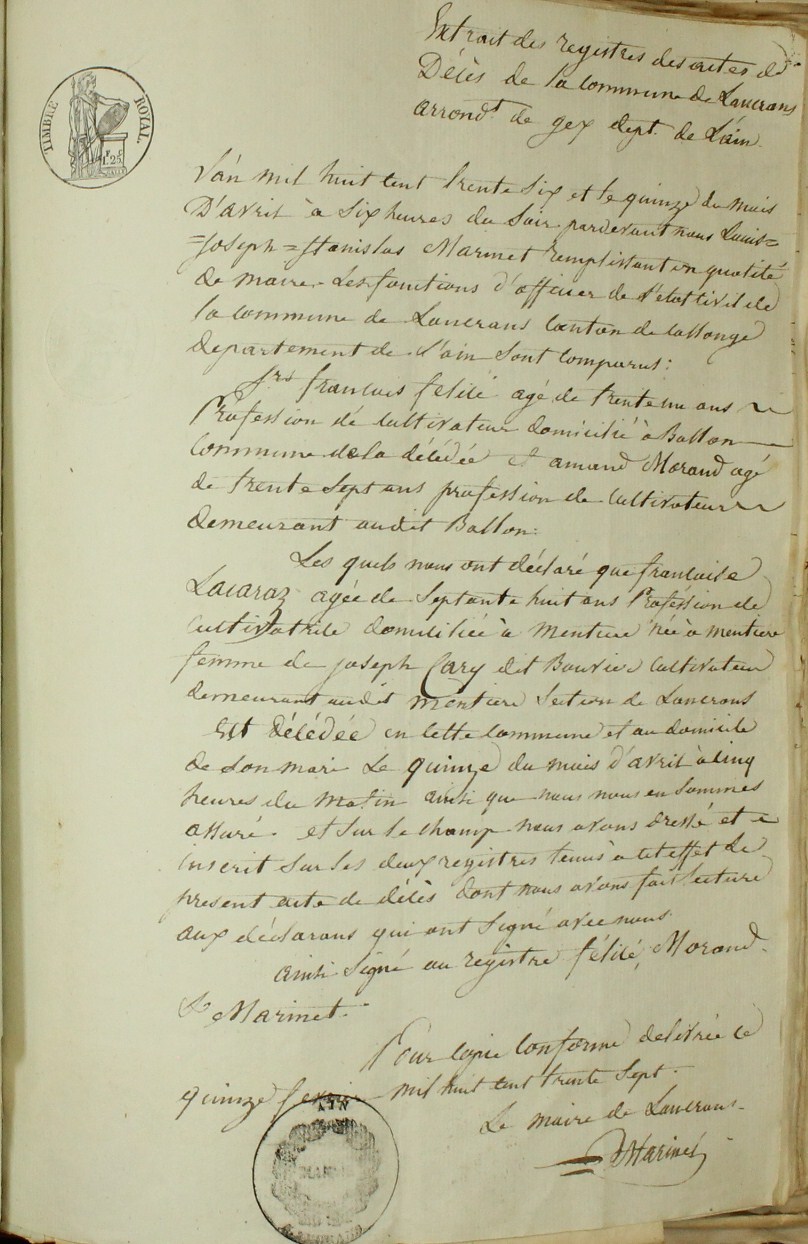 Extrait des registres des actes de
Décès de la commune de Lancrans
arrondt de gex dept de L'ain
TIMBRE ROYAL
1F 25C
L'an mil huit cent trente six et le quinze du mois
D'avril à six heures du soir pardevant nous Louis=
=Joseph=Stanislas Marinet remplissant en qualité
de maire Les fonctions d'officier de l'état civil de
la commune de Lancrans canton de collonge
departement de L'ain sont comparus:
Srs francois félélé agé de trente un ans
Profession de cultivateur domicilié à Ballon
Commune de la décédée et amand Morand agé
de trente sept ans profession de cultivateur
demeurant audit Ballon:
Les quels nous ont déclaré que francoise
Lacaraz agée de septante huit ans Profession de
cultivatrice domiciliée à mentiere née à mentiere
femme de joseph Cary dit Bouvier cultivateur
demeurant audit mentiere section de Lancrans
est Décédée en cette commune et au domicile
de son mari Le quinze du mois d'avril à cinq
heures du matin ainsi que nous nous en sommes
assuré. et sur le champ nous avons dressé et
inscrit sur les deux registres tenus à cet effet le
present acte de décès dont nous avons fait lecture
aux déclarans qui ont signé avec nous
ainsi signé au registre félélé, Morand
Marinet.
Pour copie conforme delivrée ce
quinze fevrier mil huit cent trente sept.
Le maire de Lancrans
Marinet
AIN
MAIRIE